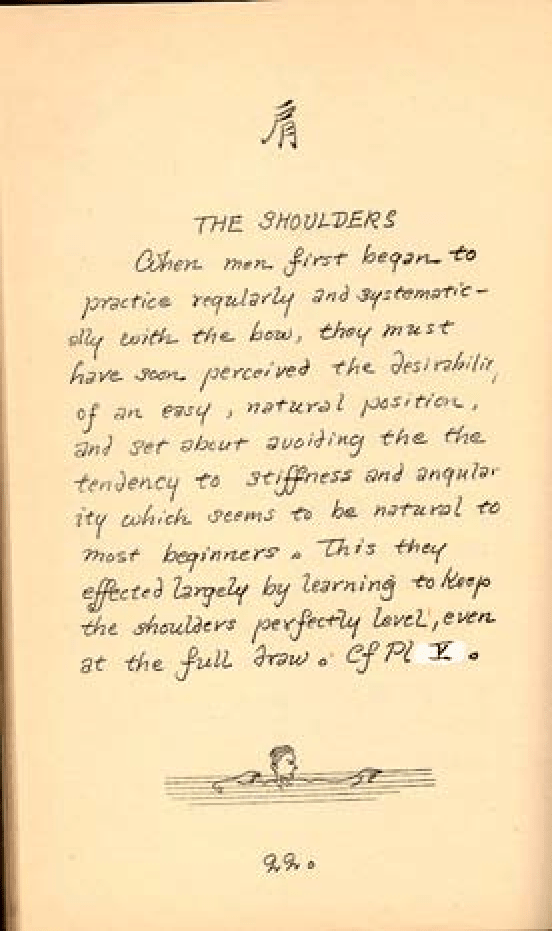 肩
THE SHOULDERS
When men first began to
practice regularly and systematic-
ally with the bow, they must
have soon perceived the desirabilit
of an easy, natural position,
and set about avoiding the the
tendency to stiffness and angular
ity which seems to be natural to
most beginners. This they
effected largely by learning to keep
the shoulders perfectly level, even
at the full draw. Cf Pl V.
22.